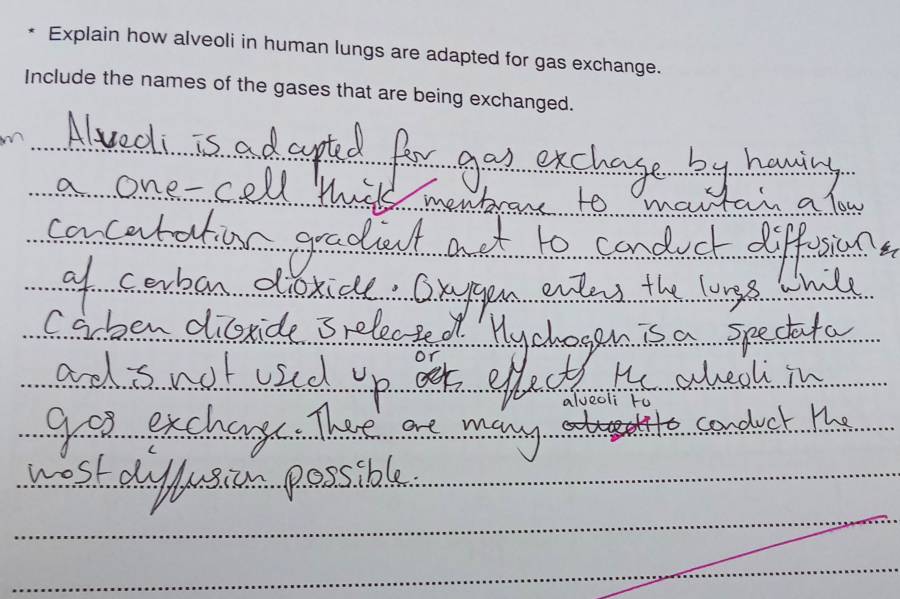 * Explain how alveoli in human lungs are adapted for gas exchange.
Include the names of the gases that are being exchanged.
Alveoli is adapted for gas exchange by having
a one-cell thick membrane to maintain a low
concentration gradient and to conduct diffusion
of carbon dioxide. Oxygen enters the lungs while
Carbon dioxide is released. Hydrogen is a spectata
and is not used up or effects the alveoli in
gas exchange. There are many alveoli to conduct the
most diffusion possible.